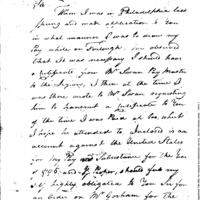 Sir
When I was in Philadelphia last
Spring and made application to You
in what manner I was to draw my
Pay while on Furlough. You observed
that it was necessary I should have
a Certificate from Mr Swan Pay Master
to the Legion, I then at the time I
was there wrote to Mr Swan requesting
him to transmit a Certificate to You
of the time I was Paid at too, which
I hope he attended to. Inclosed is an
account against the United States
for my Pay and Subsistance for the Year
1796. and Sir, should feel my
self highly obligated to You Sir for
an order on Mr Gorham for the